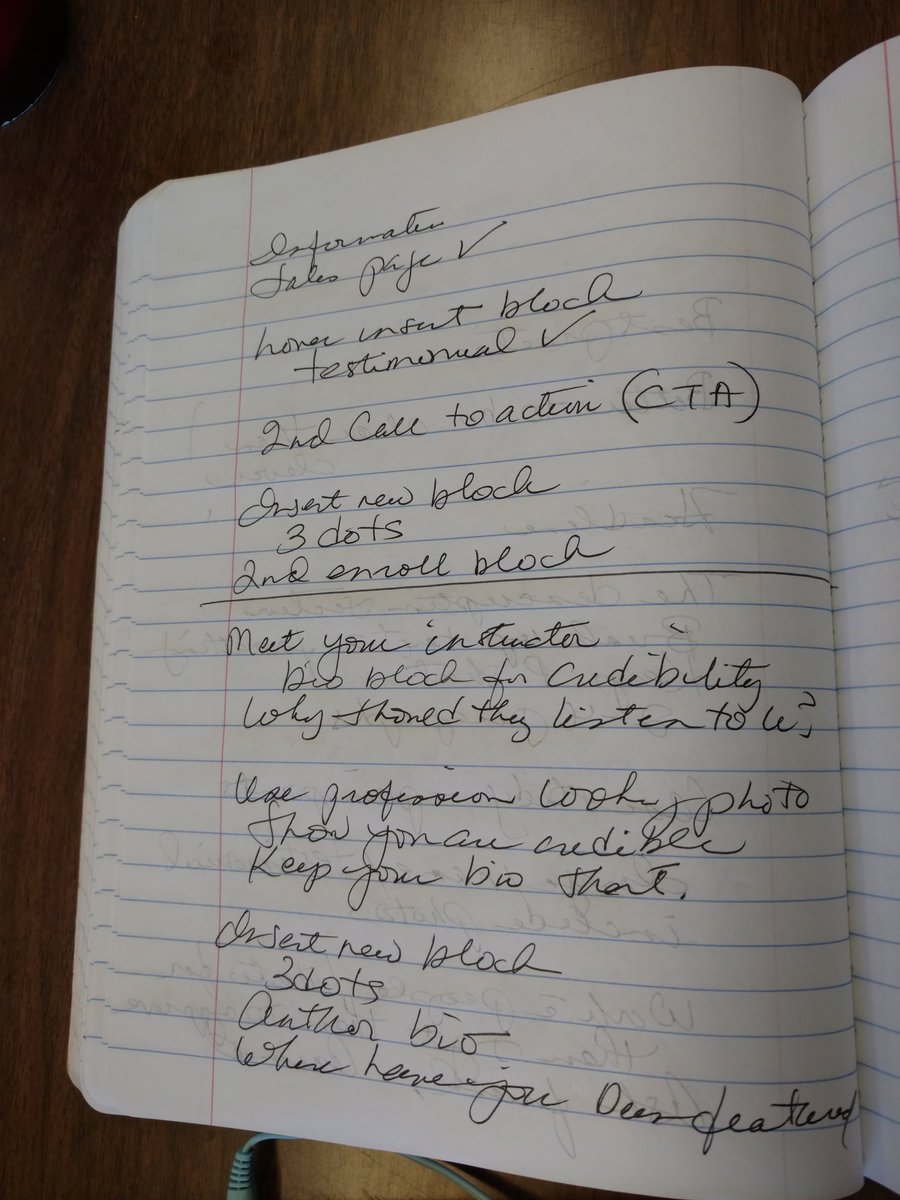 Information
Sales page ✓
hover insert block
testimonial ✓
2nd Call to action (CTA)
Insert new block
3 dots
2nd enroll block
Meet your instructor
bio block for credibility
Why should they listen to u?
Use profession looking photo
Show you are credible
Keep your bio short.
Insert new block
3 dots
Author bio
Where have you been featured